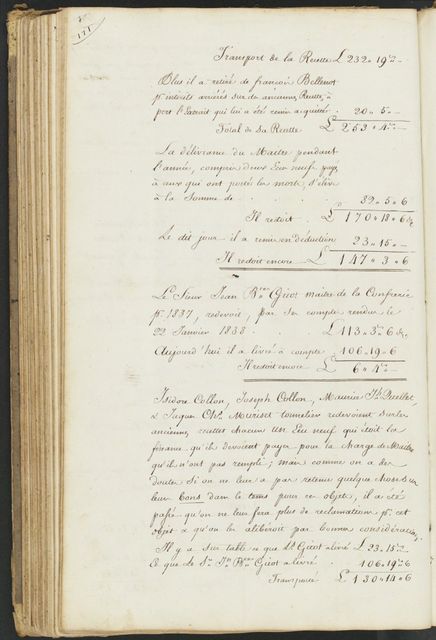 171.
Transport de la Recette £ 232 „ 19 „ —
Plus il a retiré de françois Bellenot
pr. intérêts arriérés sur des anciennes Recettes, à
port l'Extrait qui lui a été remis acquitté . 20 „ 5 „ —
Total de Sa Recette £ 253 „ 4 „ —
La délivrance du Maitre pendant
l'année, compris deux Ecu neufs payé
à ceux qui ont porté les morts, s'élève
à la Somme de . . . . 82 „ 5 „ 6
Il redoit . £ 170 „ 18 „ 6
Le dit jour il a remis en déduction 23 „ 15 „ —
Il redoit encore £ 147 „ 3 „ 6
Le Sieur Jean Bte. Gicot maitre de la Confrerie
pr. 1837, redevoit, par son compte rendu le
22 Janvier 1838 . . . £ 113 „ 3 „ 6
Aujourd'hui il a livré à compte 106 „ 19 „ 6
Il redoit encore £ 6 „ 4 „ —
Isidore Collon, Joseph Collon, Maurice Jh. Ruedet,
& Jaques Chs. Muriset tonnelier redevoient sur les
anciennes recettes chacun un Ecu neuf qui étoit la
finance qu'ils devoient payer pour la charge de Maitre
qu'ils n'ont pas remplie; mais comme on a des
doutes si on ne leur a pas retenu quelque chose sur
leur bons dans le tems pour ce objet, il a été
passé qu'on ne leur fera plus de reclamations pr. cet
objet & qu'on les libéroit par bonnes considérations
Il y a sur table ce que Gicot a livré £ 23 „ 15 „
& que le Sr. Jn. Bte. Gicot a livré . 106 „ 19 „ 6
Transporté £ 130 „ 14 „ 6